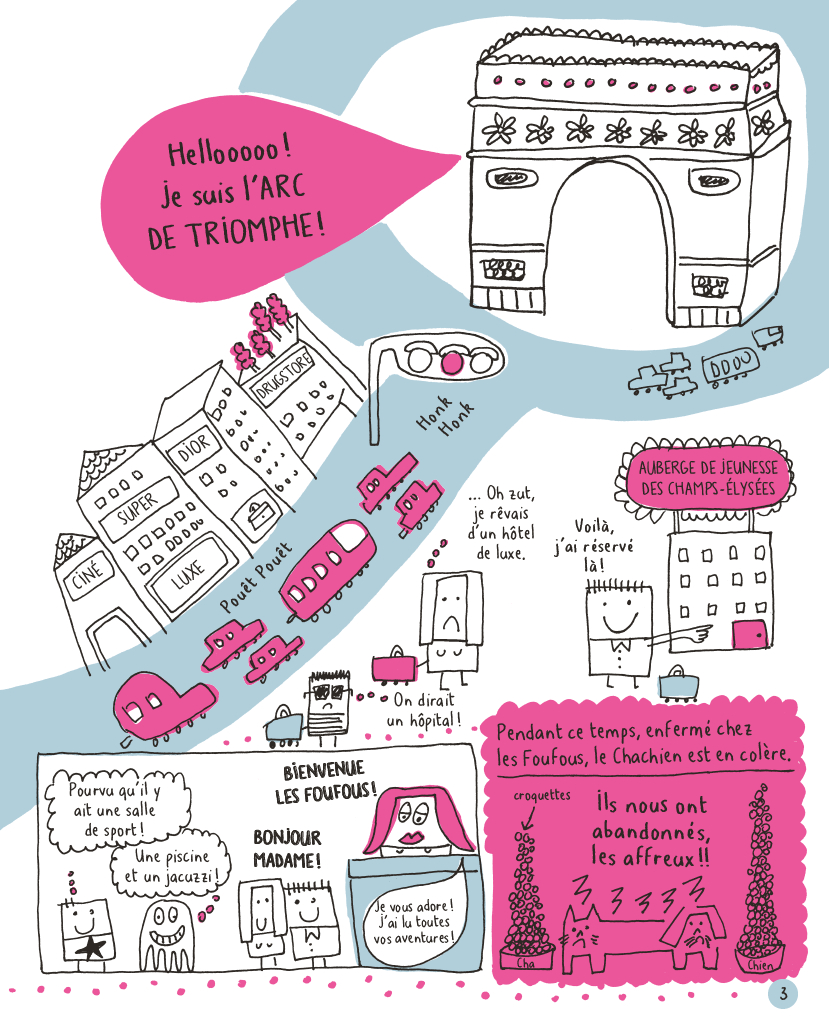 Hellooooo !
je suis l'ARC
DE TRIOMPHE !
DRUGSTORE
DIOR
SUPER
LUXE
CINÉ
Honk
Honk
Pouêt Pouêt
AUBERGE DE JEUNESSE
DES CHAMPS-ÉLYSÉES
... Oh zut,
je rêvais
d'un hôtel
de luxe.
Voilà,
j'ai réservé
là !
On dirait
un hôpital !
Pourvu qu'il y
ait une salle
de sport !
Une piscine
et un jacuzzi !
BIENVENUE
LES FOUFOUS !
BONJOUR
MADAME !
Je vous adore !
j'ai lu toutes
vos aventures !
Pendant ce temps, enfermé chez
les Foufous, le Chachien est en colère.
croquettes
ils nous ont
abandonnés,
les affreux !!
Cha
Chien
3